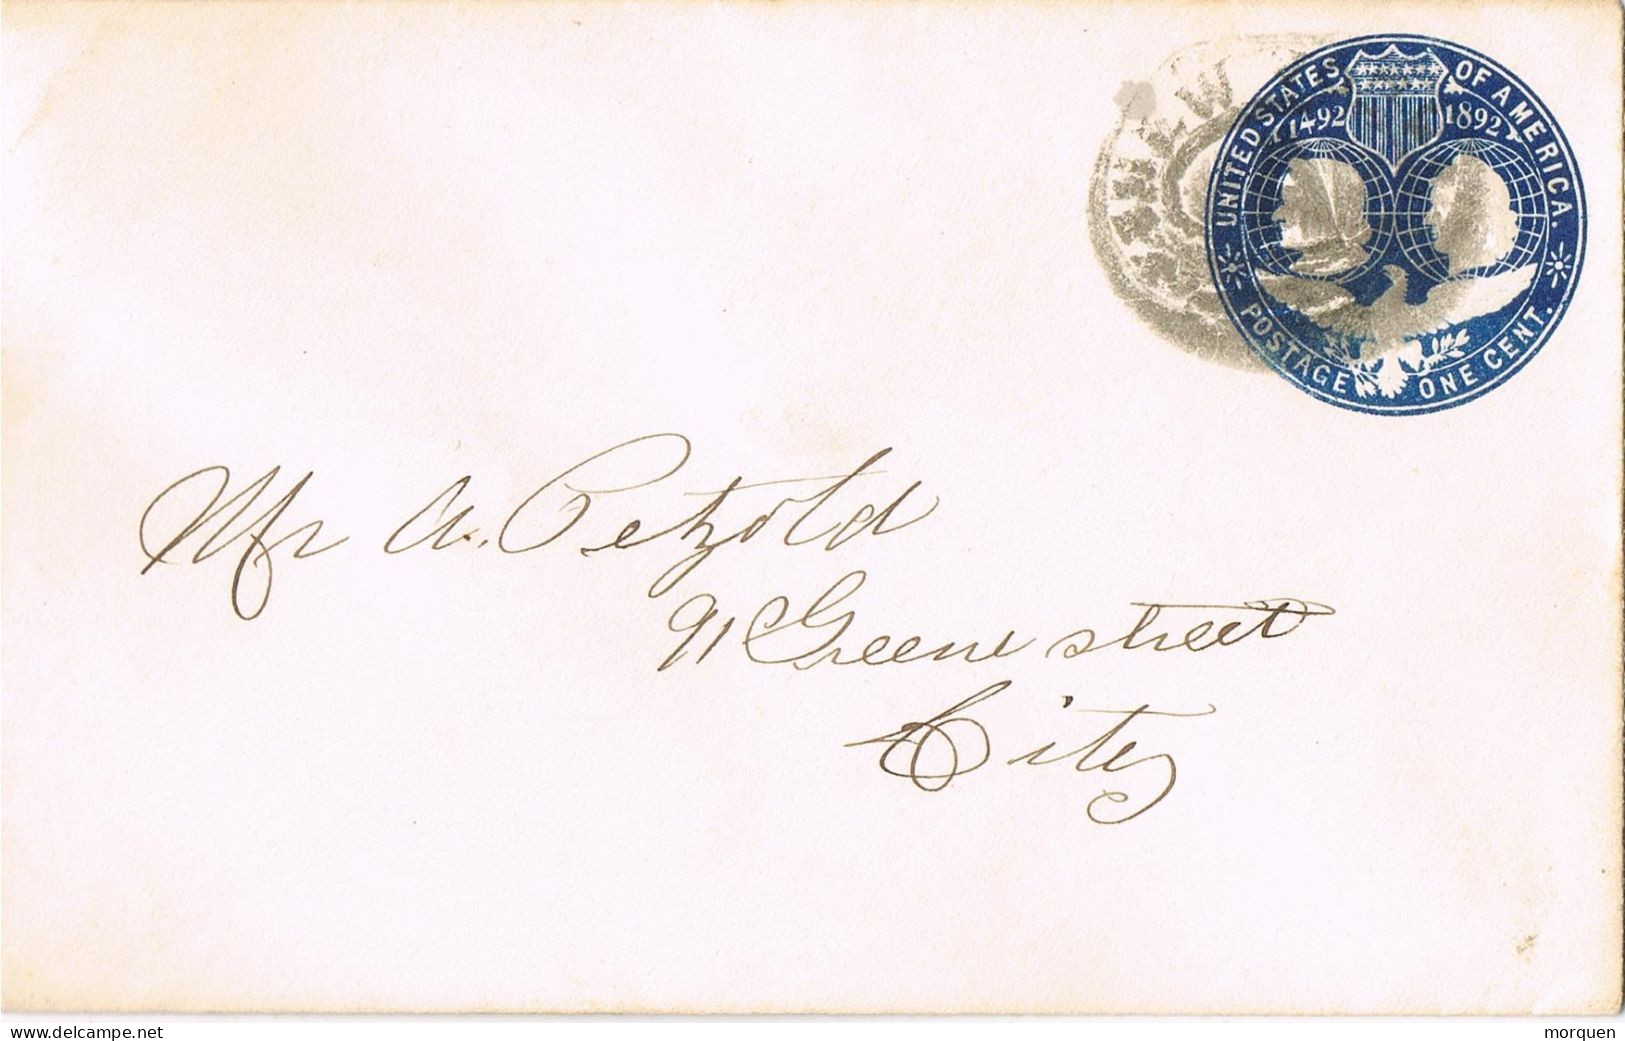 UNITED STATES OF AMERICA.
1492 1892
POSTAGE ONE CENT.
Mr A. Petzold
91 Greene street
City
www.delcampe.net
morquen